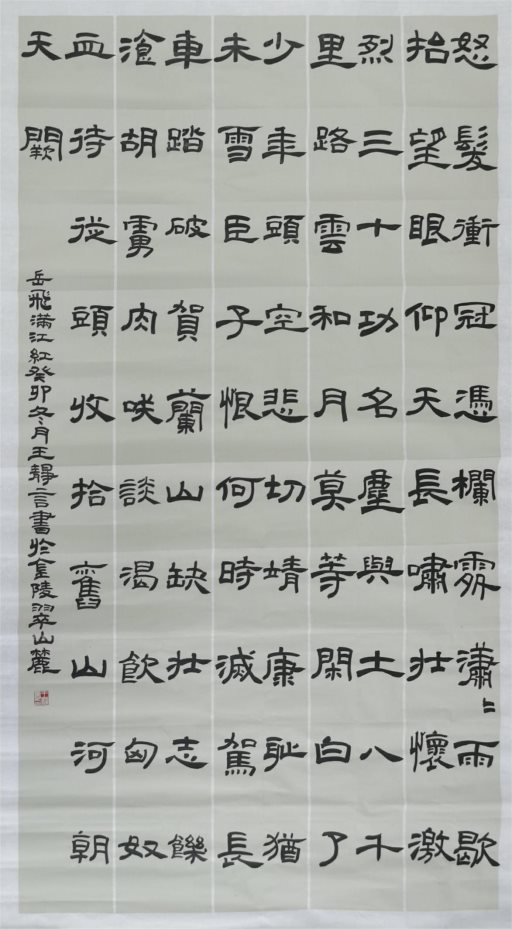 怒髮衝冠憑欄處瀟〻雨歇
抬望眼仰天長嘯壯懷激
烈三十功名塵與土八千
里路雲和月莫等閑白了
少年頭空悲切靖康耻猶
未雪臣子恨何時滅駕長
車踏破賀蘭山缺壯志饑
湌胡虜肉咲談渴飲匈奴
血待從頭收拾舊山河朝
天闕
岳飛滿江紅癸卯冬月王靜言書於金陵翠山麓